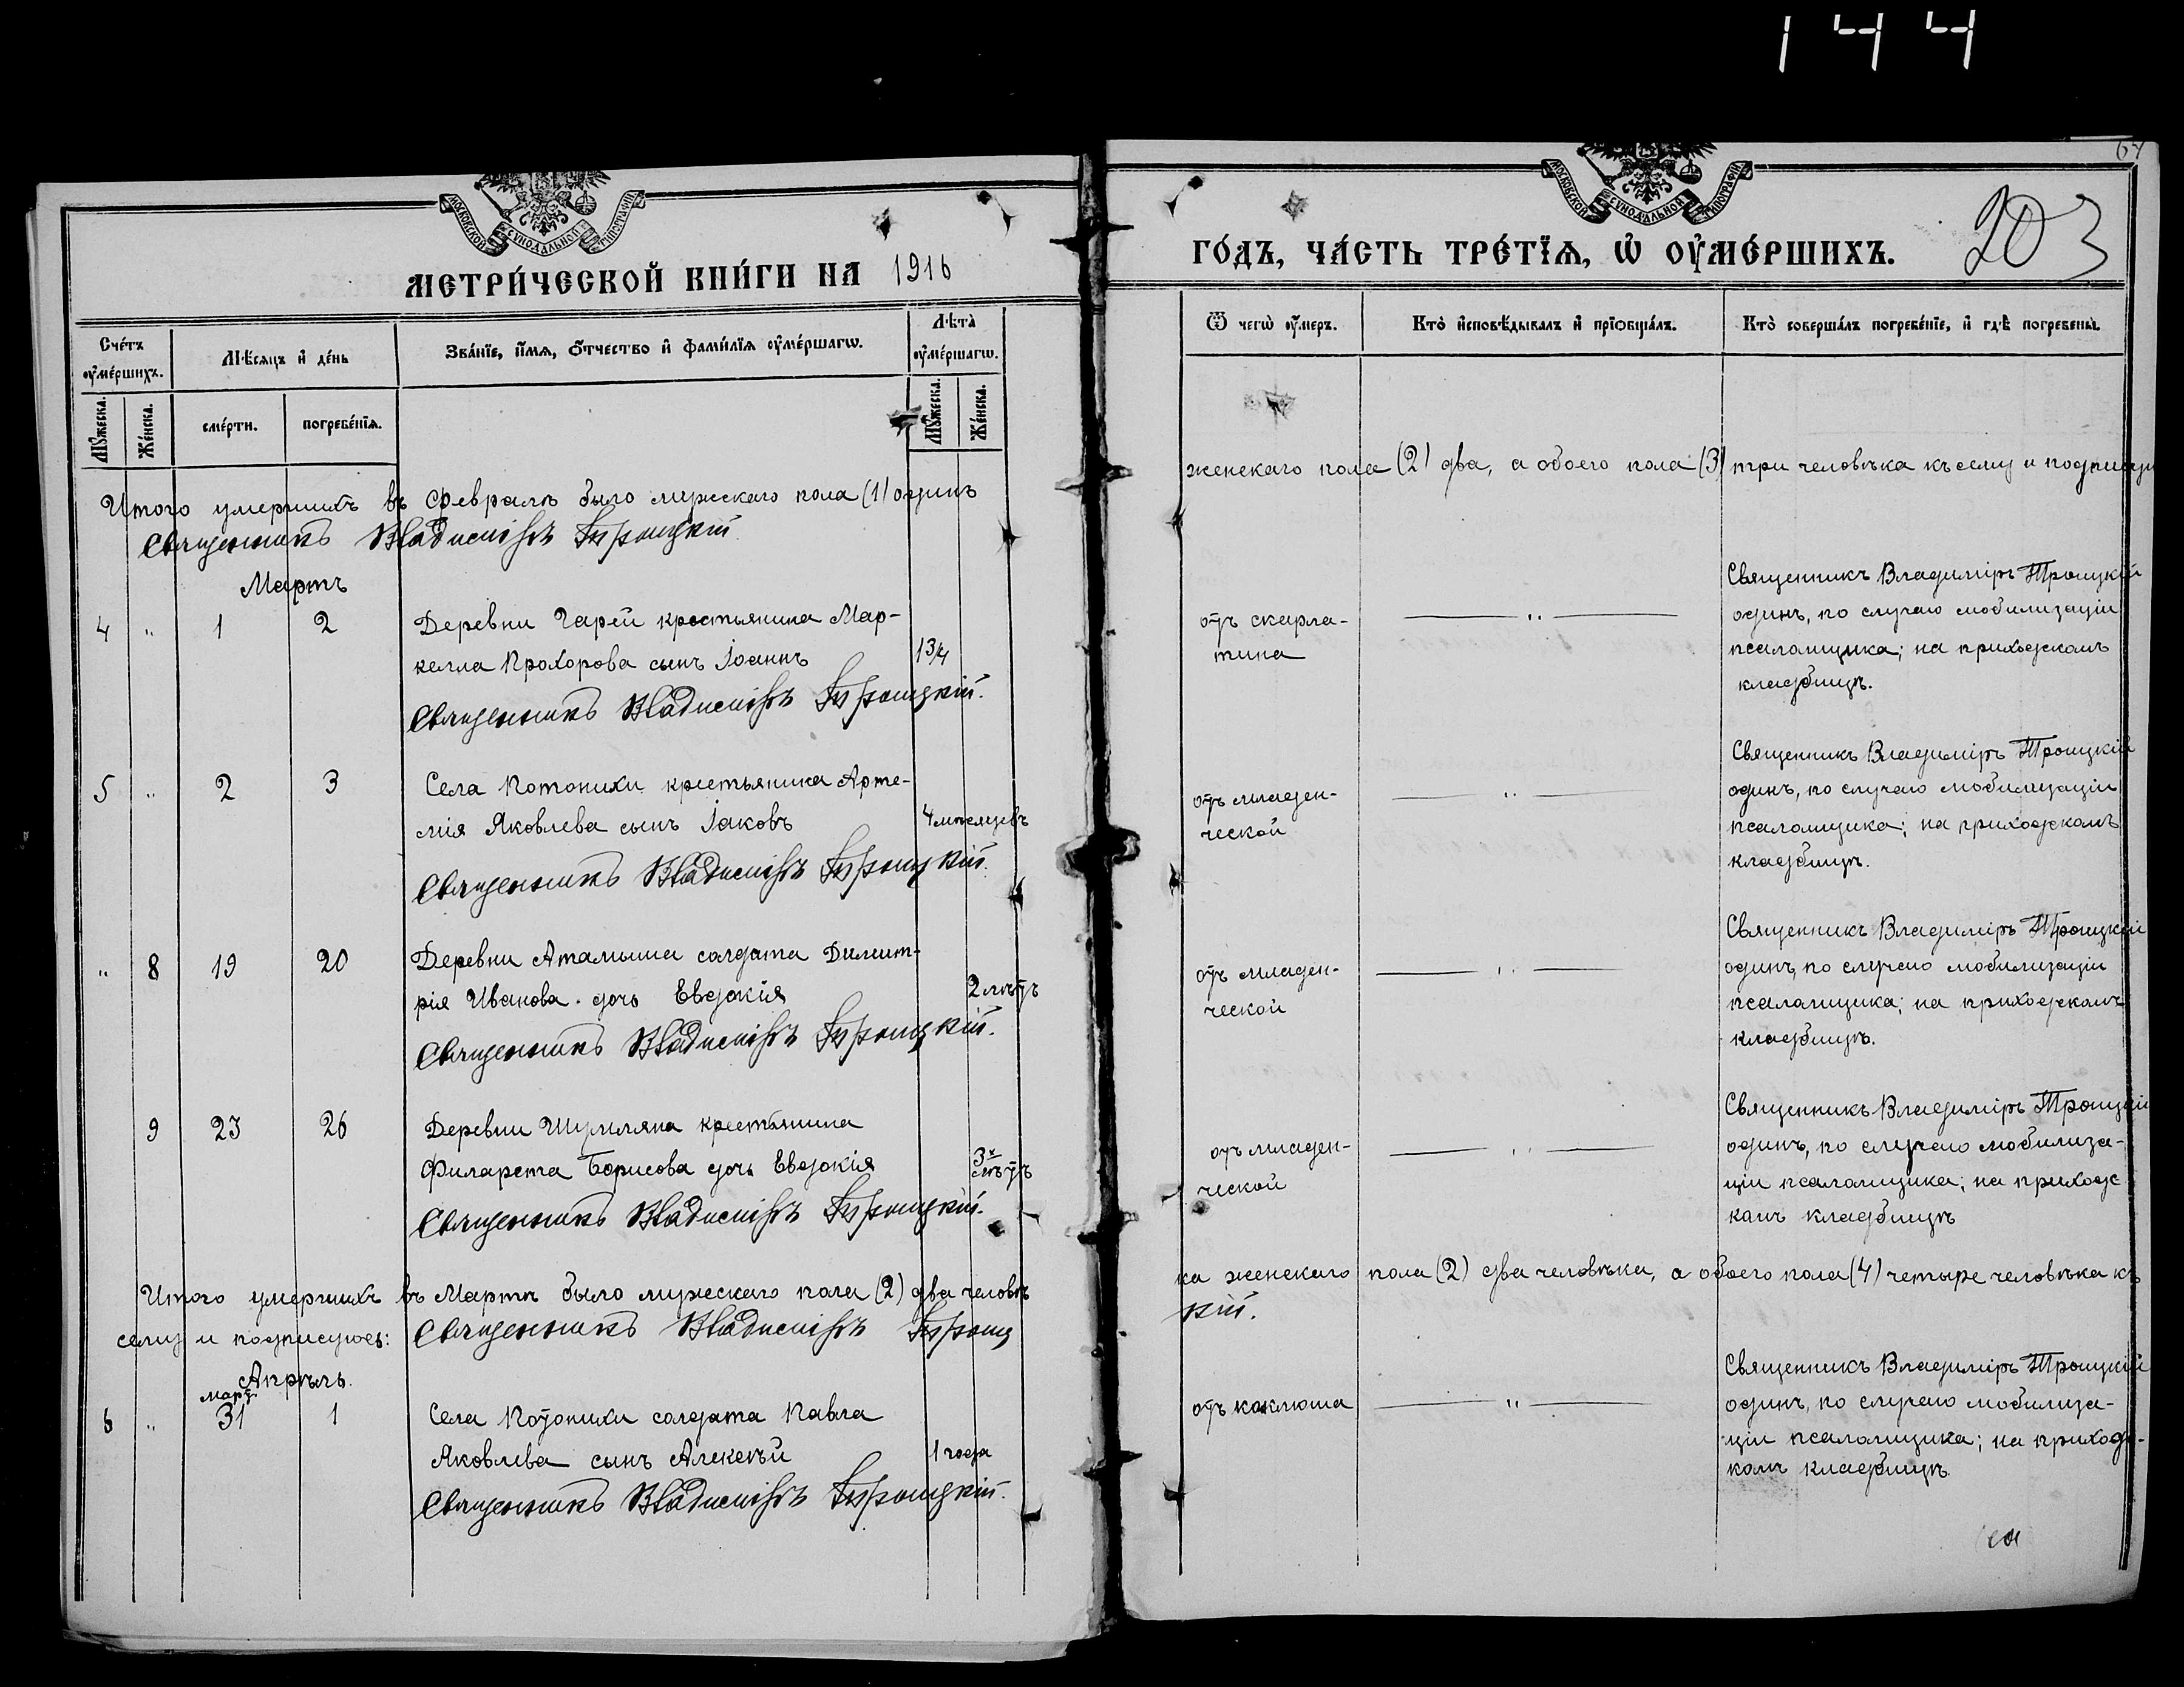 144
67
МОСКОВСКОЙ СѴНОДАЛЬНОЙ ТИПОГРАФІИ
МЕТРИ́ЧЕСКОЙ КНИ́ГИ НА 1916
Сче́тъ ᲂу҆ме́ршихъ.
Мꙋ́жеска.
Же́нска.
Мѣ́сѧцъ и҆ де́нь
сме́рти.
погребе́нїѧ.
Зва́нїе, и҆́мѧ, ѻ҆́тчество и҆ фамı́лїѧ ᲂу҆ме́ршагѡ.
Лѣ́та ᲂу҆ме́ршагѡ.
Мꙋ́жеска.
Же́нска.
Итого умершихъ въ Февралѣ было мужескаго пола (1) одинъ
Священникъ Владиміръ Троицкій
Мартъ
4 " 1 2 Деревни Гарей крестьянина Мар-
келла Прохорова сынъ Іоаннъ 1 3/4
Священникъ Владиміръ Троицкій.
5 " 2 3 Села Потопихи крестьянина Арте-
мія Яковлева сынъ Іаковъ 4 мѣсяцевъ
Священникъ Владиміръ Троицкій.
" 8 19 20 Деревни Атамыша солдата Димит-
рія Иванова дочь Евдокія 2 лѣтъ
Священникъ Владиміръ Троицкій.
9 23 26 Деревни Шумляна крестьянина
Филарета Борисова дочь Евдокія 3х лѣтъ
Священникъ Владиміръ Троицкій.
Итого умершихъ въ Мартѣ было мужескаго пола (2) два человѣ
сему и подписуюсь: Священникъ Владиміръ Троиц
Апрѣль
март
6 " 31 1 Села Потопихи солдата Павла
Яковлева сынъ Алексѣй 1 года
Священникъ Владиміръ Троицкій.
МОСКОВСКОЙ СѴНОДАЛЬНОЙ ТИПОГРАФІИ
ГО́ДЪ, ЧА́СТЬ ТРЕ́ТЇѦ, Ѡ҆ ОУ҆МЕ́РШИХЪ.
203
Ѿ чегѡ̀ ᲂу҆́меръ.
Кто̀ и҆сповѣ́дывалъ и҆ прїѻбща́лъ.
Кто̀ соверша́лъ погребе́нїе, и҆ гдѣ̀ погребены̀.
женскаго пола (2) два, а обоего пола (3) три человѣка къ сему и подписую
отъ скарла-
тина
— " —
Священникъ Владиміръ Троицкій
одинъ, по случаю мобилизаціи
псаломщика; на приходскомъ
кладбищѣ.
отъ младен-
ческой
— " —
Священникъ Владиміръ Троицкій
одинъ, по случаю мобилизаціи
псаломщика; на приходскомъ
кладбищѣ.
отъ младен-
ческой
— " —
Священникъ Владиміръ Троицкій
одинъ, по случаю мобилизаціи
псаломщика; на приходскомъ
кладбищѣ.
отъ младен-
ческой
— " —
Священникъ Владиміръ Троицкій
одинъ, по случаю мобилиза-
ціи псаломщика; на приходс
комъ кладбищѣ
ка женскаго пола (2) два человѣка, а обоего пола (4) четыре человѣка къ
кій.
отъ коклюша
— " —
Священникъ Владиміръ Троицкій
одинъ, по случаю мобилиза-
ціи псаломщика; на приходс-
комъ кладбищѣ.